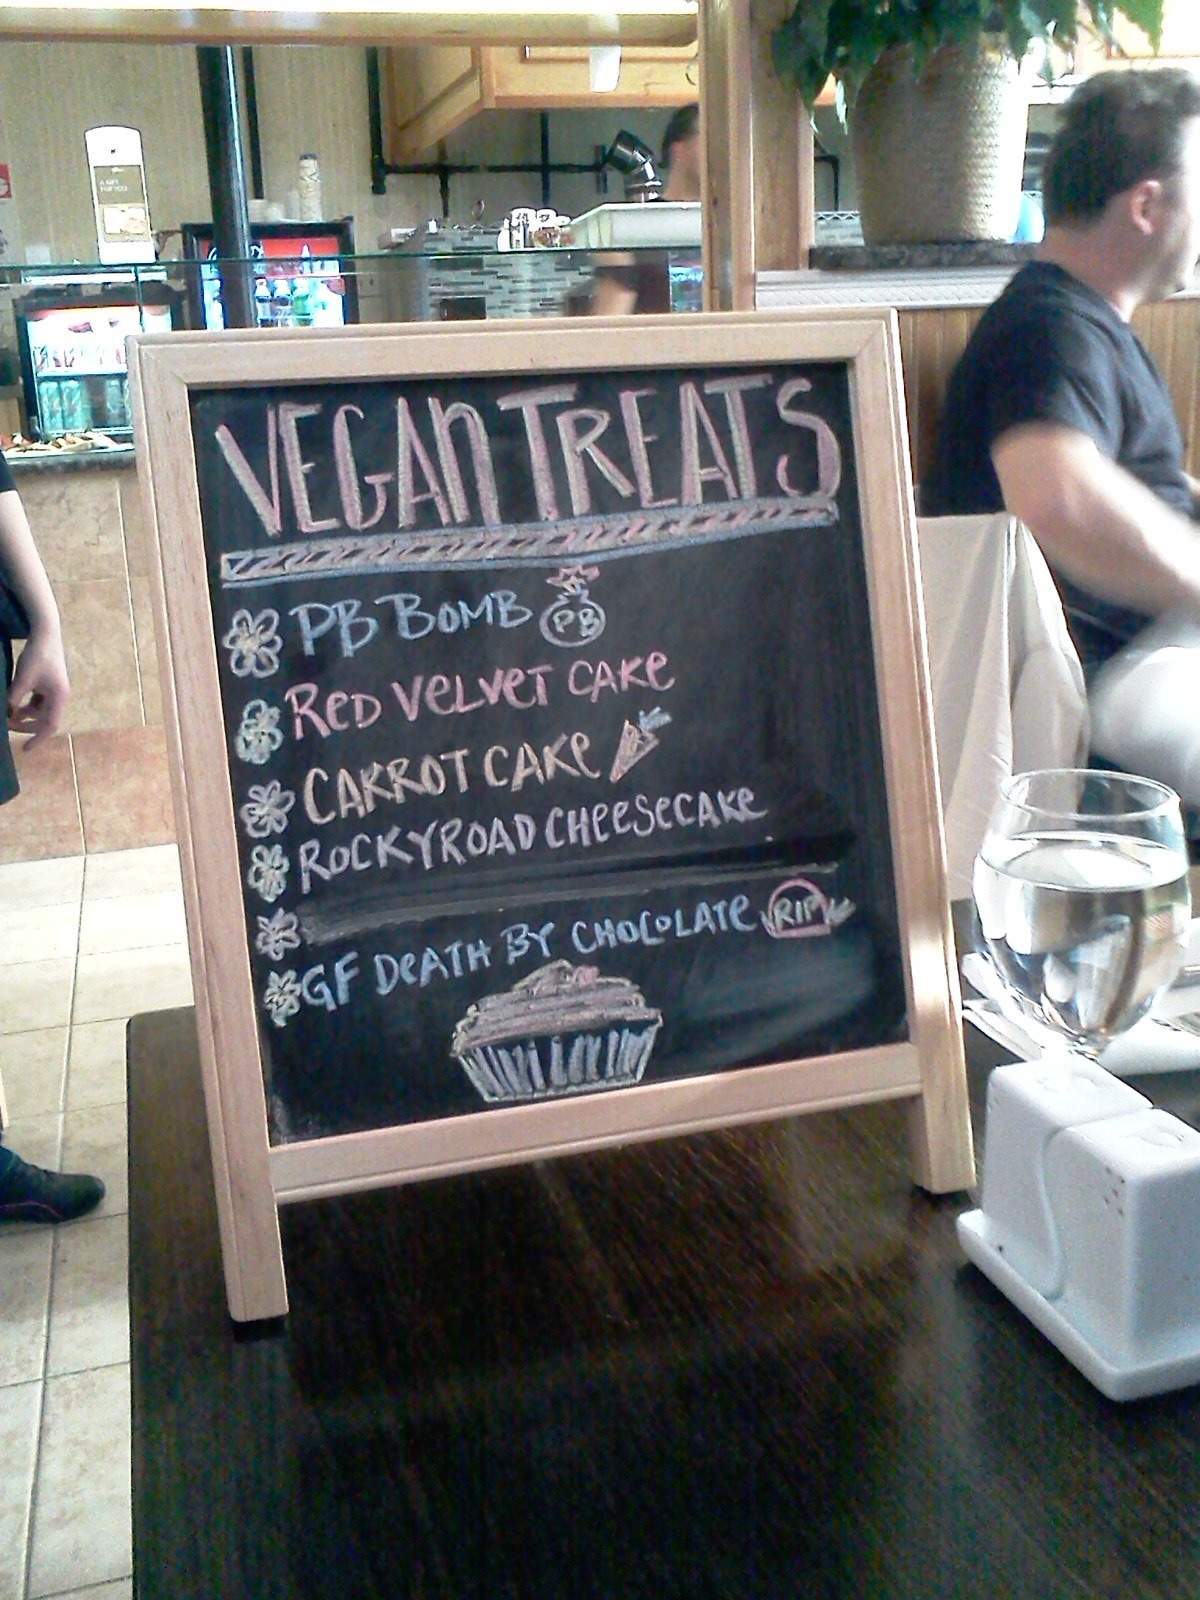 VEGAN TREATS
PB BOMB PB
RED VELVET CAKE
CARROT CAKE
ROCKY ROAD CHEESECAKE
GF DEATH BY CHOCOLATE RIP
A GIFT
FOR YOU